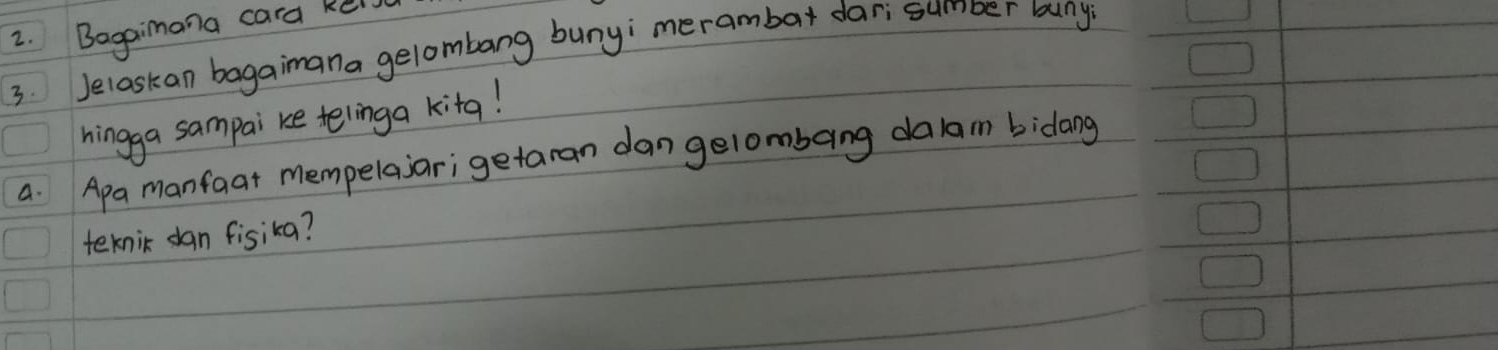 2. Bagaimana cara
3. Jelaskan bagaimana gelombang bunyi merambat dari sumber bunyi
hingga sampai ke telinga kita!
a. Apa manfaat mempelajari getaran dan gelombang dalam bidang
teknik dan fisika?